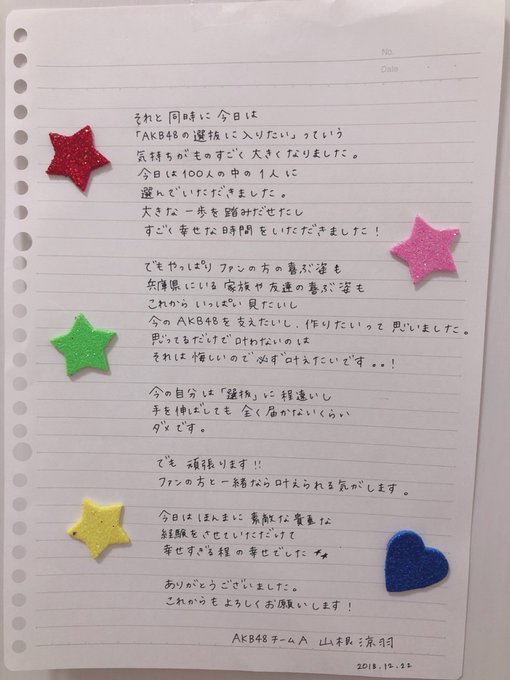 No.
Date
それと同時に今日は
「AKB48の選抜に入りたい」っていう
気持ちがものすごく大きくなりました。
今日は100人の中の1人に
選んでいただきました。
大きな一歩を踏みだせたし
すごく幸せな時間をいただきました！
でもやっぱりファンの方の喜ぶ姿も
兵庫県にいる家族や友達の喜ぶ姿も
これからいっぱい見たいし
今のAKB48を支えたいし、作りたいって思いました。
思ってるだけで叶わないのは
それは悔しいので必ず叶えたいです。。！
今の自分は「選抜」に程遠いし
手を伸ばしても全く届かないくらい
ダメです。
でも頑張ります!!
ファンの方と一緒なら叶えられる気がします。
今日はほんまに素敵な貴重な
経験をさせていただけて
幸せすぎる程の幸せでした
ありがとうございました。
これからもよろしくお願いします！
AKB48チームA 山根涼羽
2018.12.22